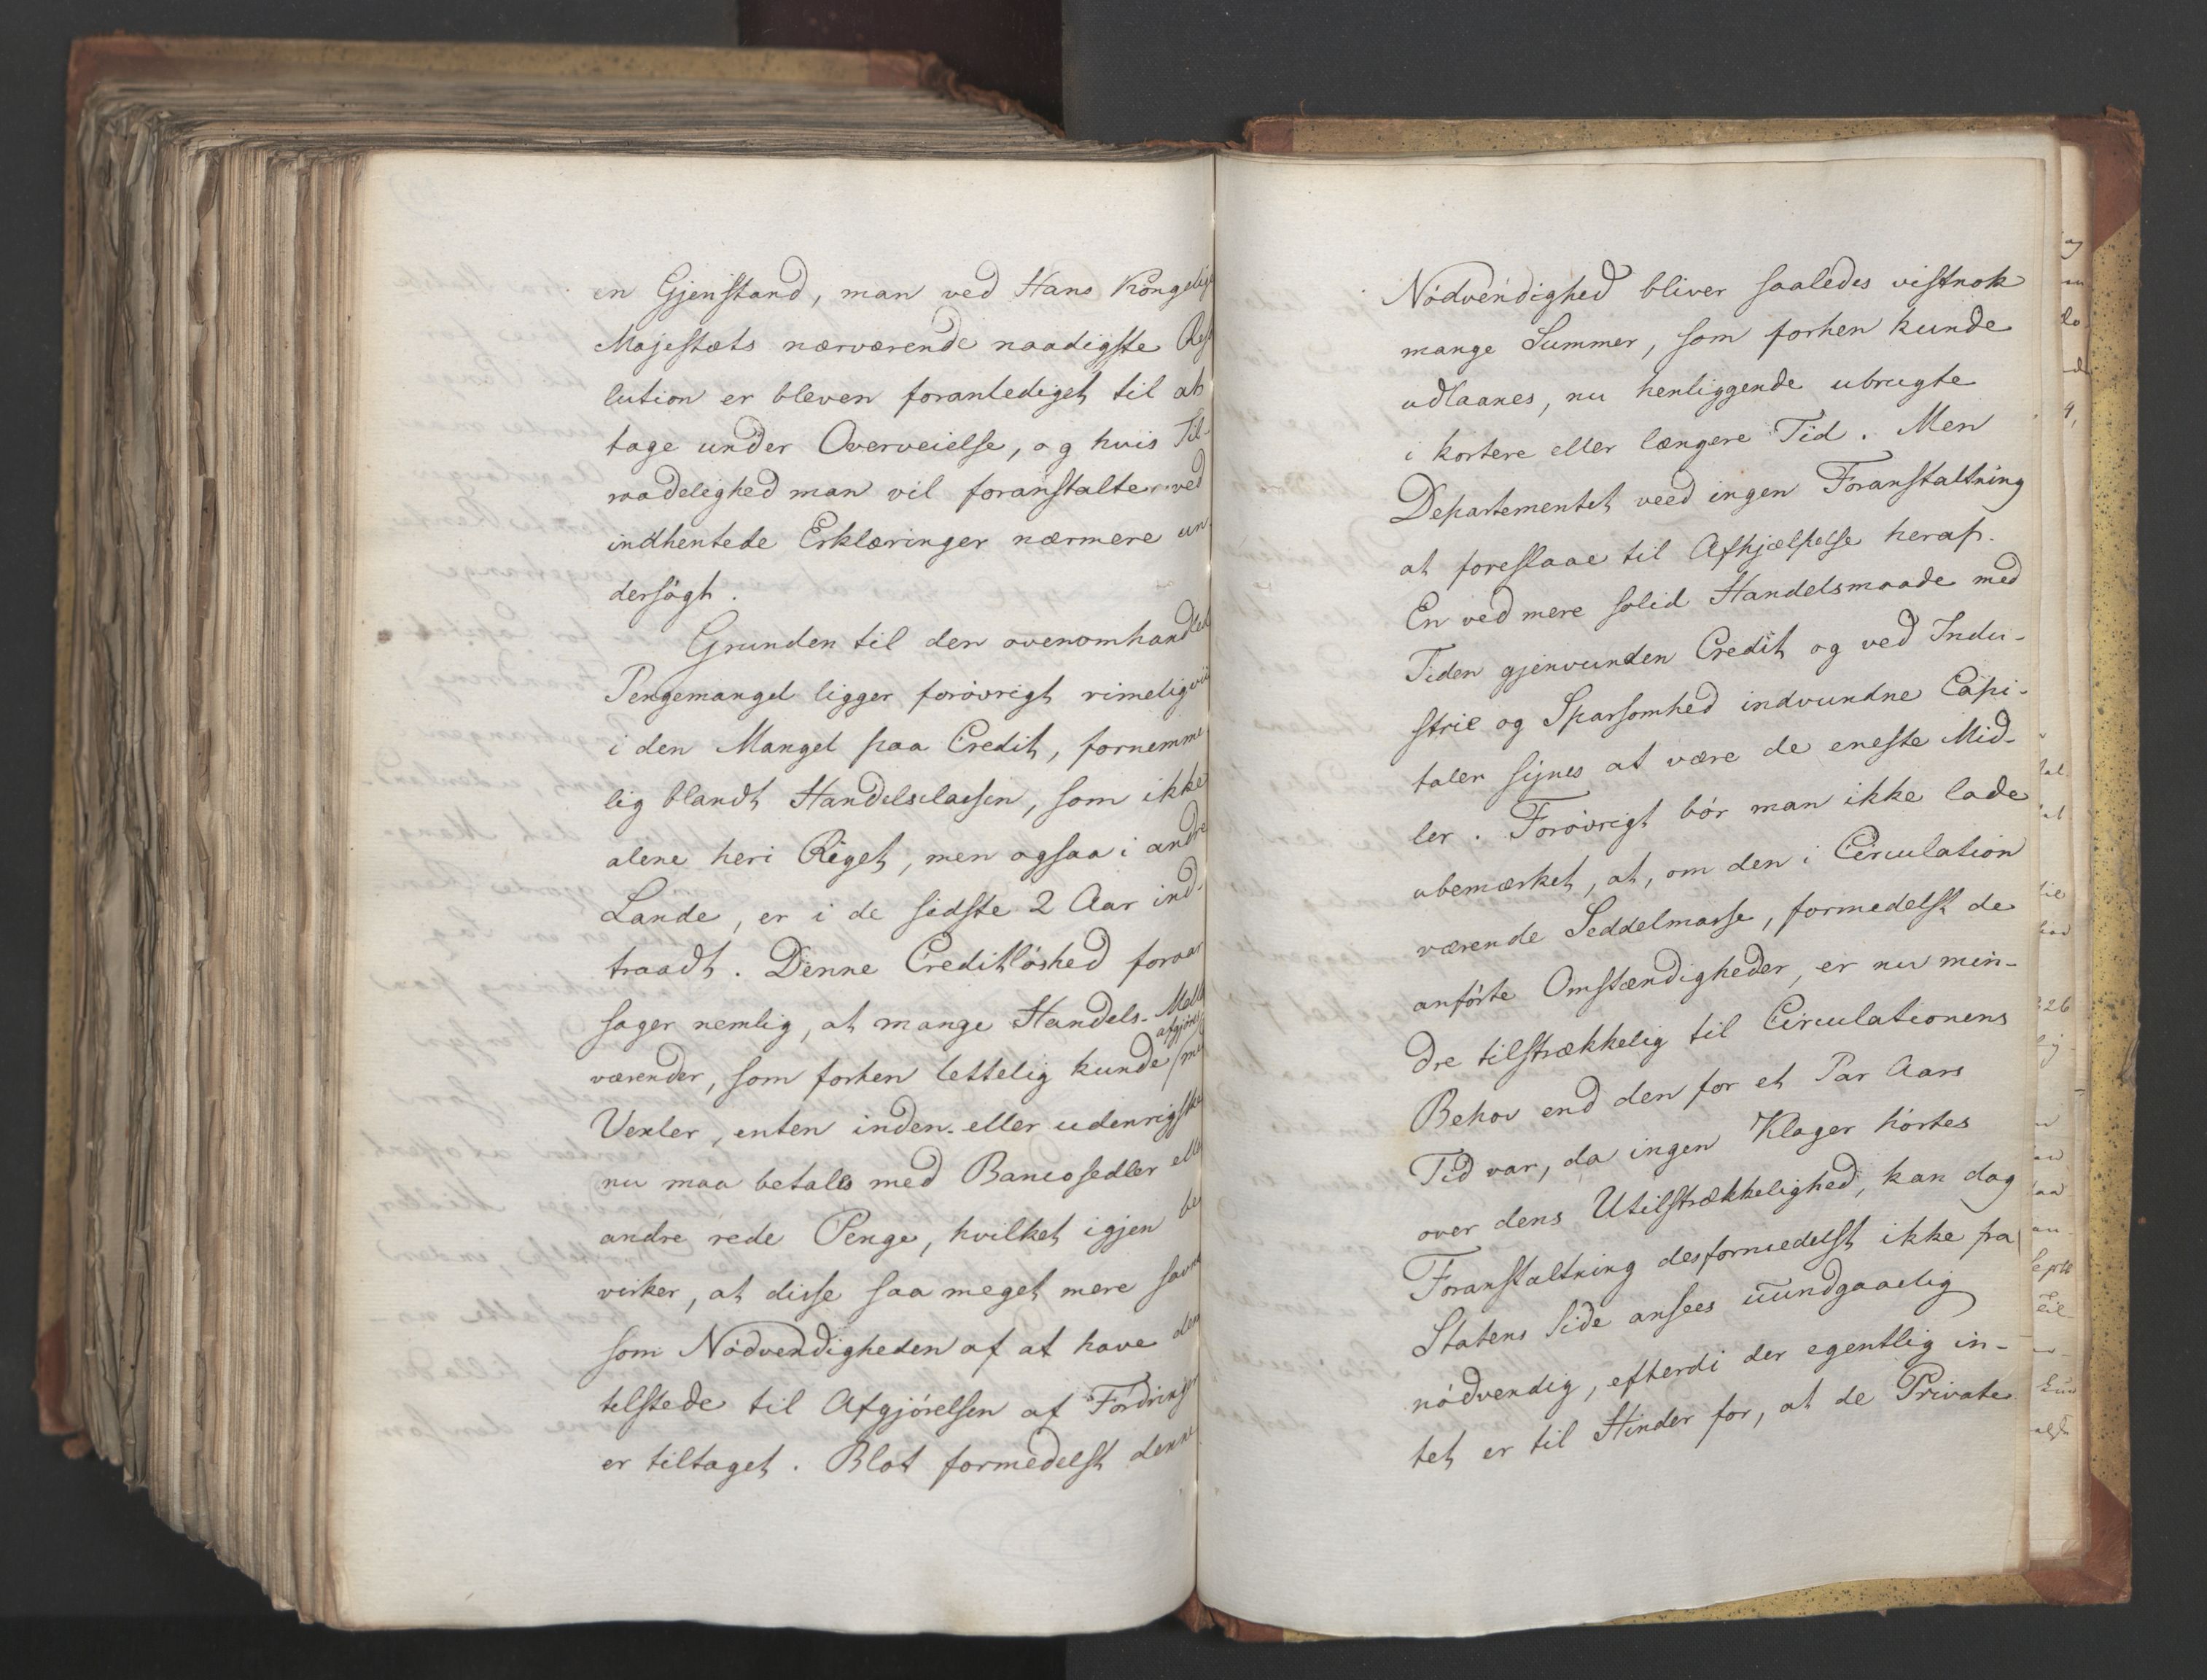 en Gjenstand, man ved Hans Kongelige
Majestæts nærværende naadigste Reso
lution er bleven foranlediget til at
tage under Overveielse, og hvis Til-
raadelighed man vil foranstalte ved
indhentede Erklæringer nærmere un-
dersøgt.
Grunden til den ovenomhandlede
Pengemangel ligger forøvrigt rimeligviis
i den Mangel paa Credit, fornemme-
lig blandt Handelsclassen, som ikke
alene heri Riget, men ogsaa i andre
Lande, er i de sidste 2 Aar ind-
traadt. Denne Creditløshed foraar
sager nemlig, at mange Handels-Mell
værender, som forhen lettelig kunde afgjøres med
Vexler, enten inden- eller udenrigske
nu maa betales med Bancosedler eller
andre rede Penge, hvilket igjen be
virker, at disse saa meget mere savnes
som Nødvendigheden af at have dem
tilstede til Afgjørelsen af Fordringer
er tiltaget. Blot formedelst denne
Nødvendighed bliver saaledes vistnok
mange Summer, som forhen kunde
udlaanes, nu henliggende ubrugte
i kortere eller længere Tid. Men
Departementet veed ingen Foranstaltning
at foreslaae til Afhjælpelse heraf.
En ved mere solid Handelsmaade med
Tiden gjenvunden Credit og ved Indu-
strie og Sparsomhed indvundne Capi-
taler synes at være de eneste Mid-
ler. Forøvrigt bør man ikke lade
ubemærket, at, om den i Circulation
værende Seddelmasse, formedelst de
anførte Omstændigheder, er nu min-
dre tilstrækkelig til Circulationens
Behov end den for et Par Aars
Tid var, da ingen Klager hørtes
over dens Utilstrækkelighed, kan dog
Foranstaltning desformedelst ikke fra
Statens Side ansees uundgaaelig
nødvendig, efterdi der egentlig in-
tet er til Hinder for, at de Private